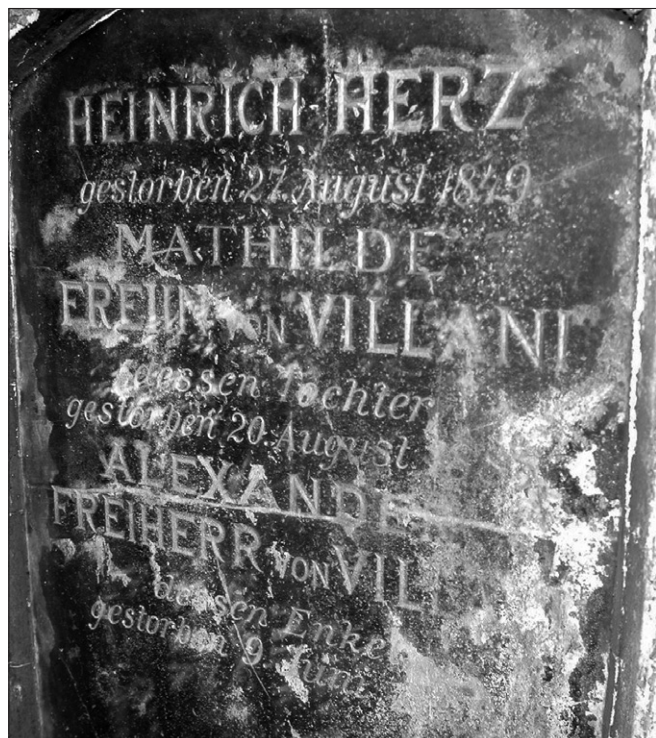 HEINRICH HERZ
gestorben 27. August 1849
MATHILDE
FREIIN VON VILLANI
dessen Tochter
gestorben 20. August
ALEXANDE
FREIHERR VON VIL
dessen Enke
gestorben 9. Juni